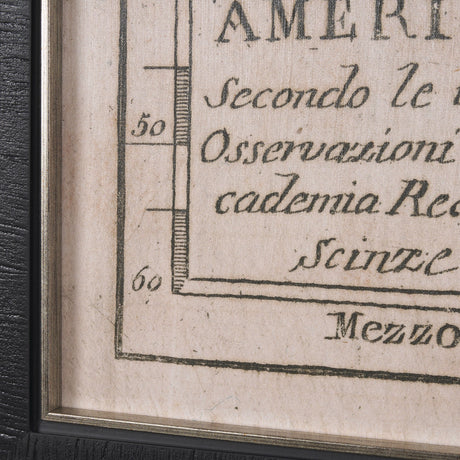 AMERI
Secondo le
50
Osservazioni
cademia Rea
Scinze
60
Mezzo